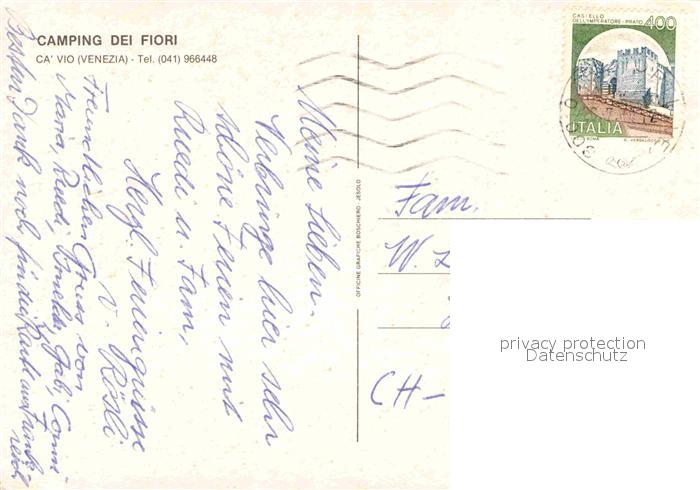 CAMPING DEI FIORI
CA' VIO (VENEZIA) - Tel. (041) 966448
Meine Lieben.
Verbringe hier sehr
schöne Ferien mit
Ruedi u. Fam,
Herzl. Feriengrüsse
v. Rösli
Freundlichen Gruss von
Maria, Ruedi, Gabi, Conni
Besten Dank noch für die Karte aus
OFFICINE GRAFICHE BOSCHIERO - JESOLO
CASTELLO
DELL'IMPERATORE - PRATO
400
ITALIA
ROMA
Fam.
W.
CH-
privacy protection
Datenschutz